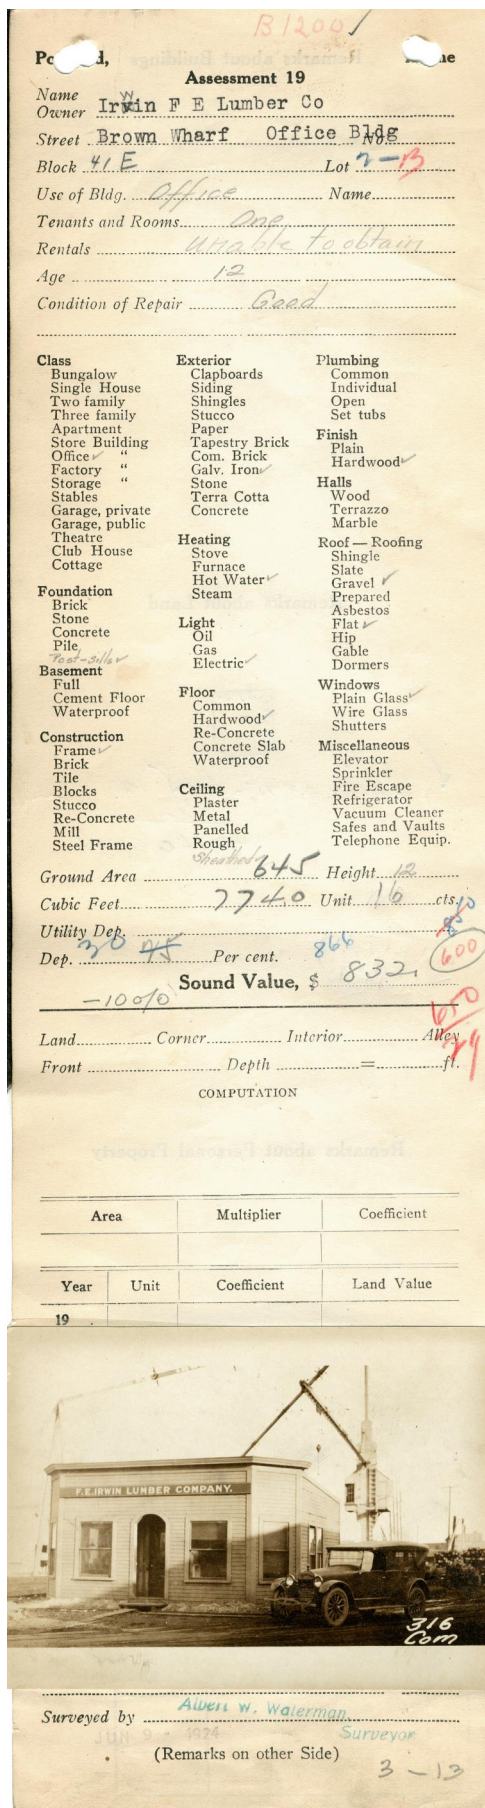 B1200/
Assessment 19
Name
Owner Irwin F E Lumber Co
Street Brown Wharf Office Bldg No.
Block 41E Lot 2-B
Use of Bldg. Office Name
Tenants and Rooms One
Rentals Unable to obtain
Age 12
Condition of Repair Good
Class
Bungalow
Single House
Two family
Three family
Apartment
Store Building
Office ✓ "
Factory "
Storage "
Stables
Garage, private
Garage, public
Theatre
Club House
Cottage
Foundation
Brick
Stone
Concrete
Pile
Post-Sills ✓
Basement
Full
Cement Floor
Waterproof
Construction
Frame ✓
Brick
Tile
Blocks
Stucco
Re-Concrete
Mill
Steel Frame
Exterior
Clapboards
Siding
Shingles
Stucco
Paper
Tapestry Brick
Com. Brick
Galv. Iron ✓
Stone
Terra Cotta
Concrete
Heating
Stove
Furnace
Hot Water ✓
Steam
Light
Oil
Gas
Electric ✓
Floor
Common
Hardwood ✓
Re-Concrete
Concrete Slab
Waterproof
Ceiling
Plaster
Metal
Panelled
Rough
Sheathed
Plumbing
Common
Individual
Open
Set tubs
Finish
Plain
Hardwood ✓
Halls
Wood
Terrazzo
Marble
Roof — Roofing
Shingle
Slate
Gravel ✓
Prepared
Asbestos
Flat ✓
Hip
Gable
Dormers
Windows
Plain Glass ✓
Wire Glass
Shutters
Miscellaneous
Elevator
Sprinkler
Fire Escape
Refrigerator
Vacuum Cleaner
Safes and Vaults
Telephone Equip.
Ground Area 645 Height 12
Cubic Feet 7740 Unit 16 cts.
Utility Dep.
Dep. 30 45 Per cent. 866 600
Sound Value, $ 832.
-10%
650
Land Corner Interior Alley
Front Depth = ft.
COMPUTATION
Area Multiplier Coefficient
Year Unit Coefficient Land Value
19
F.E. IRWIN LUMBER COMPANY.
316
Com
Surveyed by Albert W. Waterman
JUN 9 - 1924 Surveyor
(Remarks on other Side)
3-13